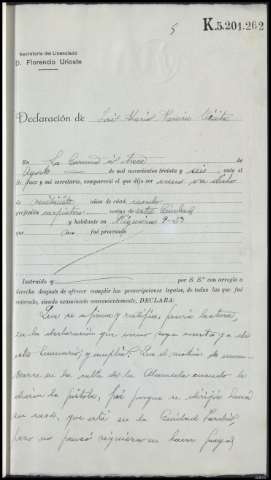 5
K.5.201.262
Secretaría del Licenciado
D. Florencio Urioste
Declaración de José María
En La Coruña a trece de
Agosto de mil novecientos treinta y seis ante el
Sr. Juez y mi secretario, compareció el que dijo ser como va dicho
de años de edad, casado
profesión carpintero vecino de esta Ciudad
y habitante en 9-53
que no fué procesado
Instruído y por S. S.ª con arreglo a
derecho después de ofrecer cumplir las prescripciones legales, de todas las que fué
enterado, siendo examinado convenientemente, DECLARA:
Que se afirma y ratifica, previa lectura,
en la declaración que como suya consta ya en
este Sumario, y amplía: Que el motivo de encon-
trarse en la calle de la Alameda cuando le
dieron la pistola, fué porque se dirigía hacia
su casa, que está en la Ciudad Jardín,
pero no pensó requisar ni hacer fuego,